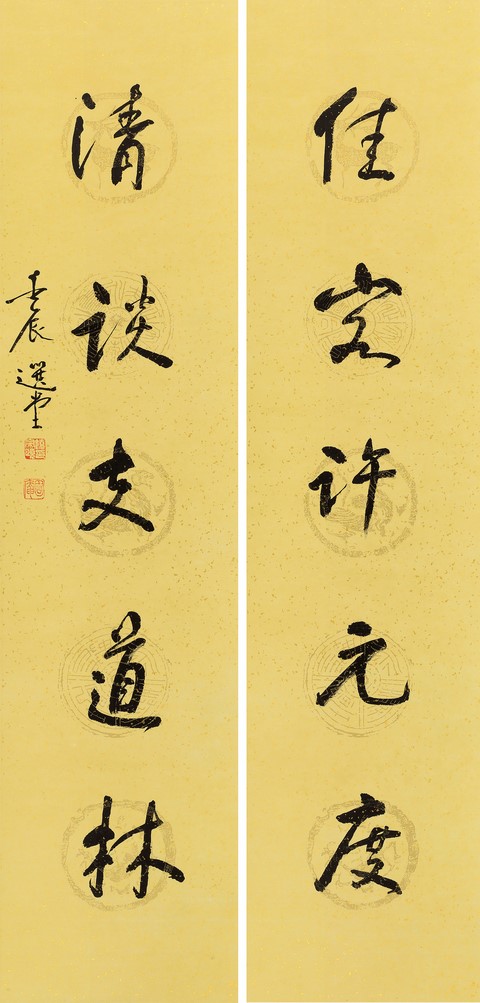 佳客許元度
清談支道林
壬辰選堂